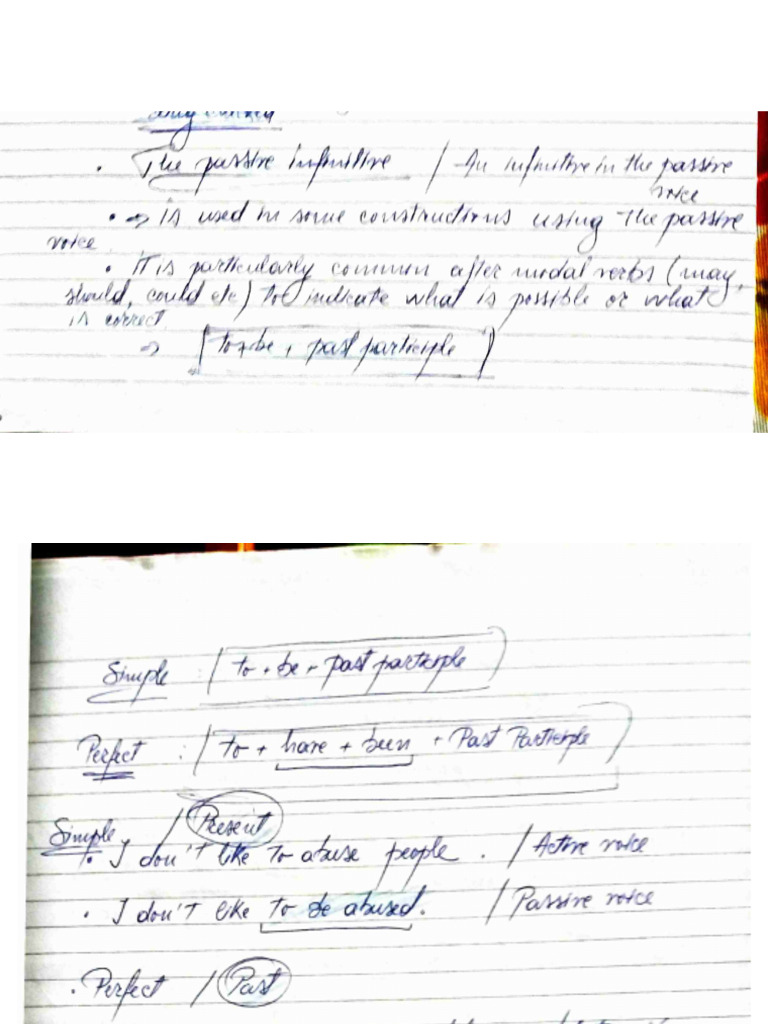 • The passive infinitive / An infinitive in the passive
voice
• => is used in some constructions using the passive
voice
• it is particularly common after modal verbs (may,
should, could etc) to indicate what is possible or what
is correct.
=> [to + be + past participle]
Simple [to + be + past participle]
Perfect : [to + have + been + Past Participle]
Simple / Present
• I don't like to abuse people. / Active voice
• I don't like to be abused. / Passive voice
• Perfect / Past